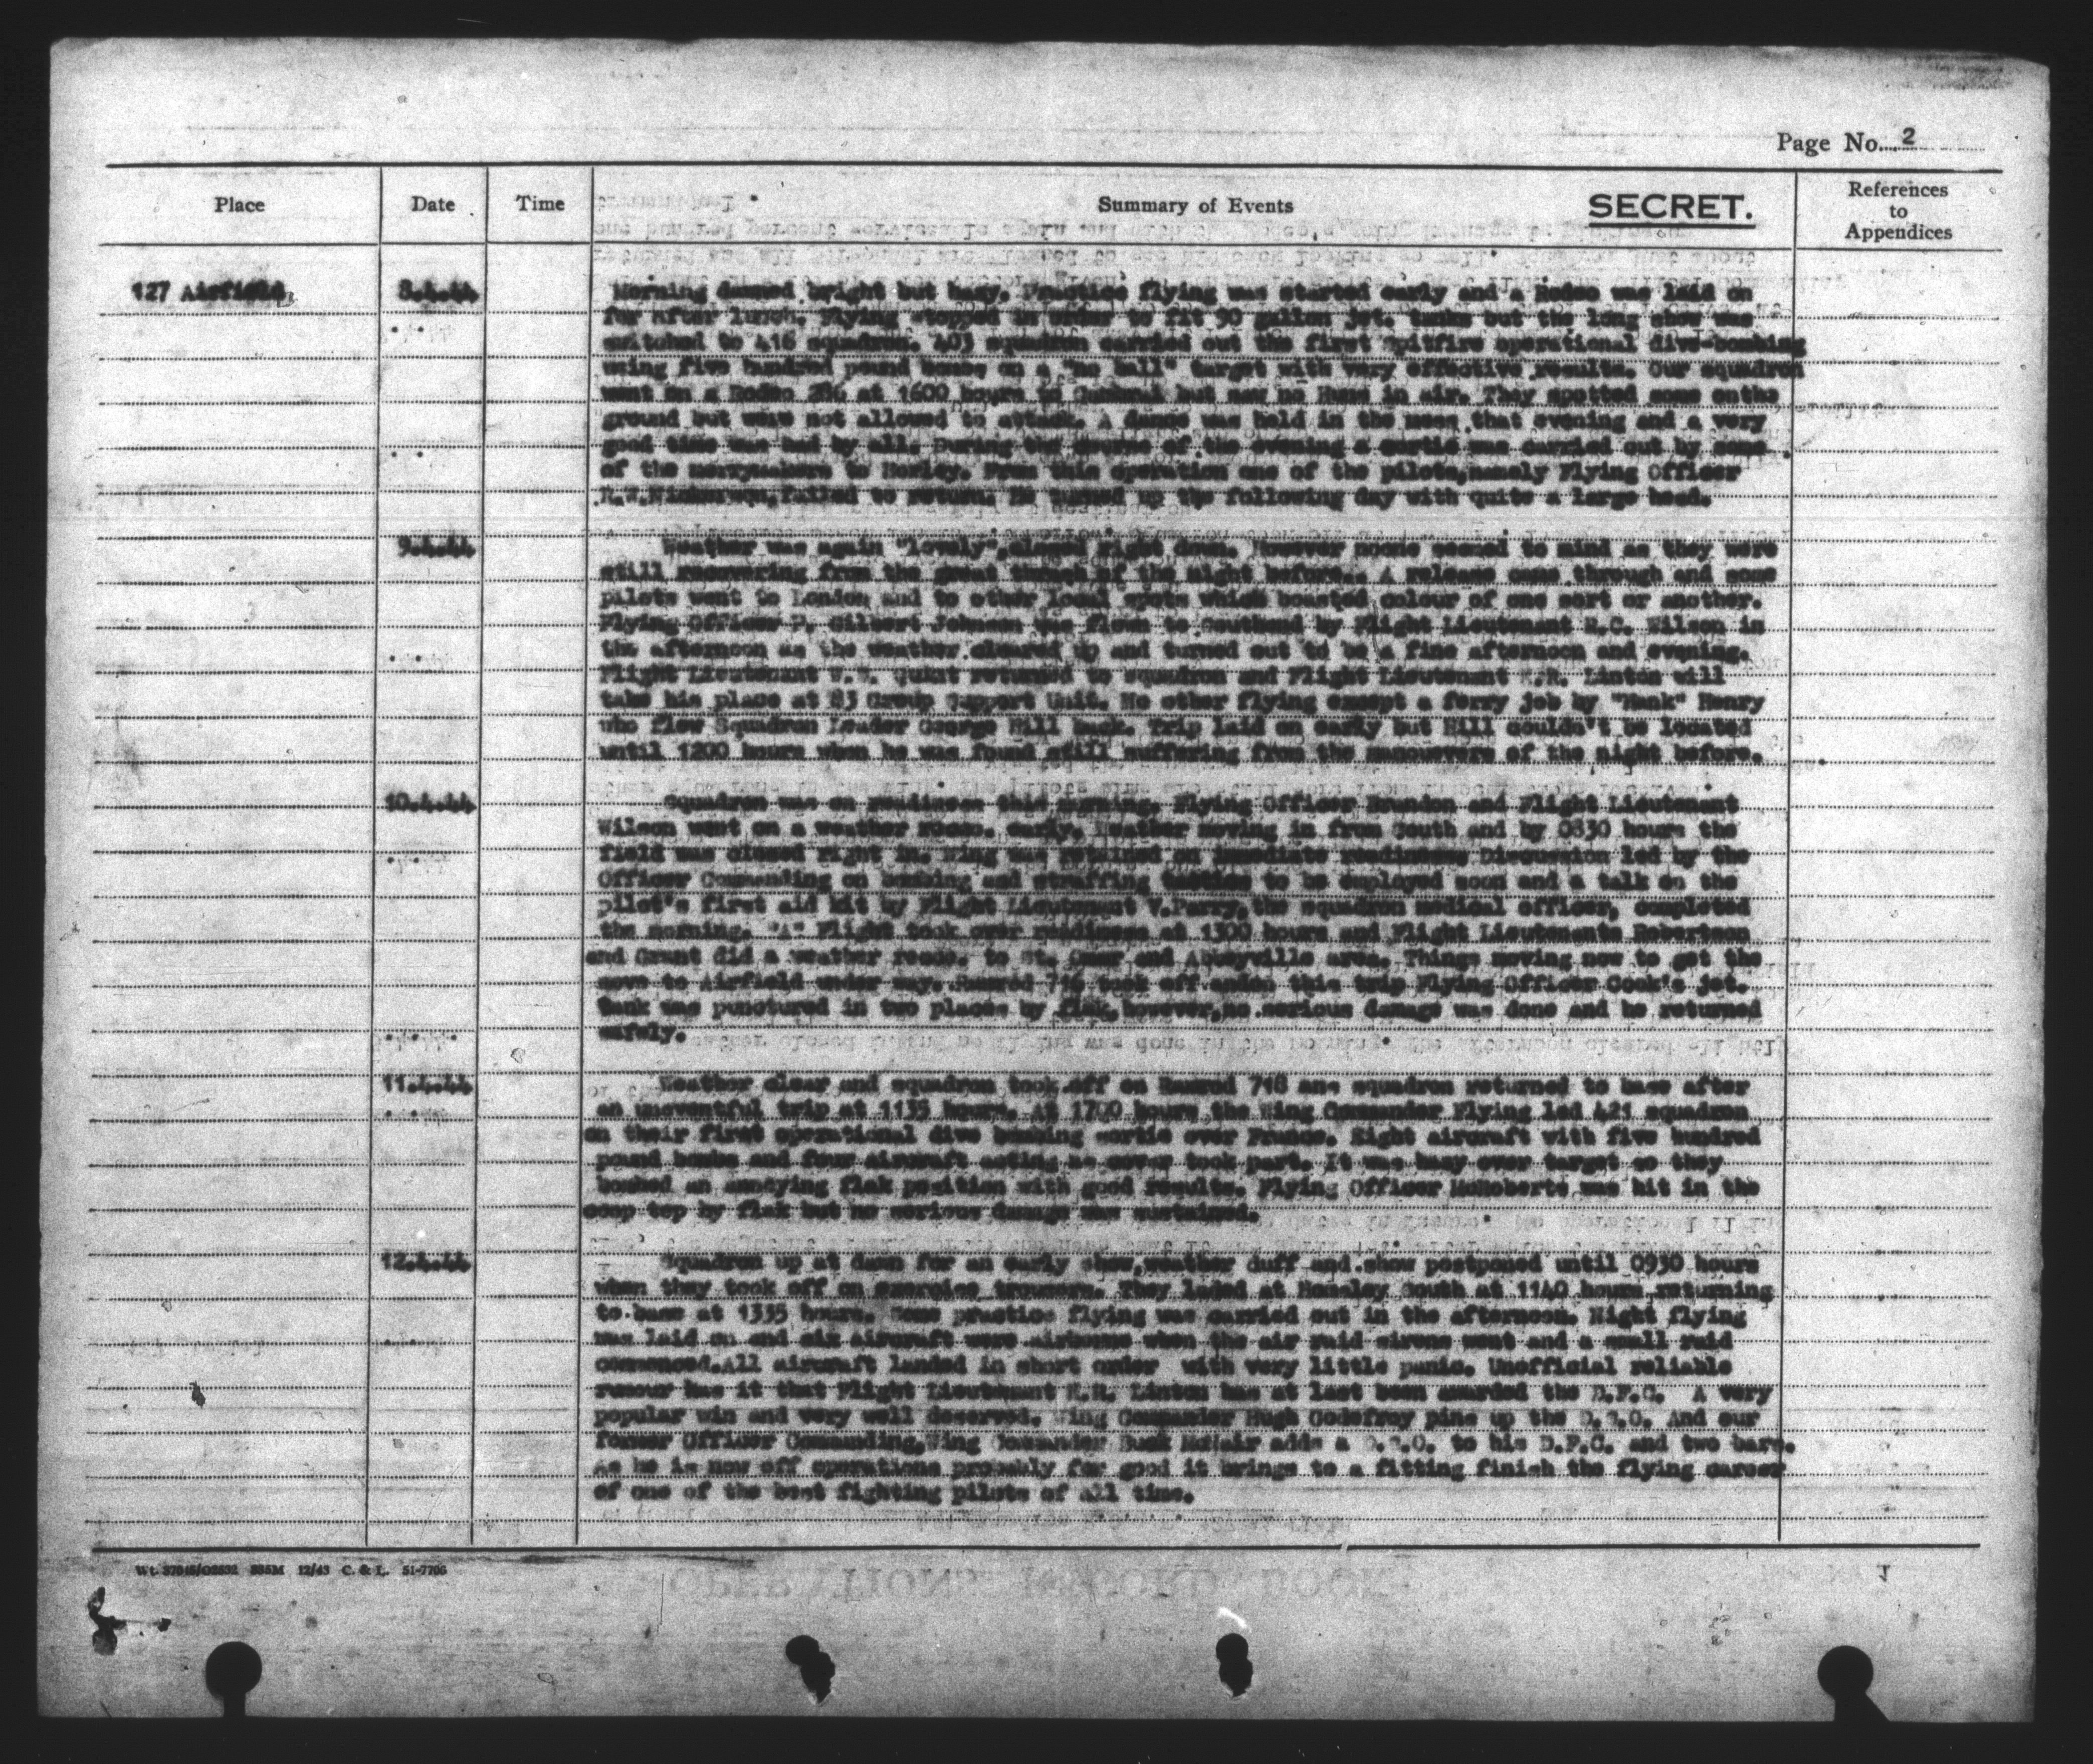 Page No. 2
Place Date Time Summary of Events SECRET. References to Appendices
127 Airfield. 8.4.44 Morning dawned bright but hazy. Practice flying was started early and a Rodeo was laid on
for after lunch. Flying stopped in order to fit 90 gallon jet. tanks but the long show was
switched to 416 squadron. 403 squadron carried out the first Spitfire operational dive-bombing
using five hundred pound bombs on a "no ball" target with very effective results. Our squadron
went on a Rodeo at 1600 hours to but saw no Huns in air. They spotted some onthe
ground but were not allowed to attack. A dance was held in the mess that evening and a very
good time was had by all. During the course of the evening a sortie was carried out by some
of the merrymakers to Horley. From this operation one of the pilots,namely Flying Officer
failed to return. He turned up the following day with quite a large head.
9.4.44 Weather was again "lovely",clamped right down. However noone seemed to mind as they were
still recovering from the great of the night before. A release came through and some
pilots went to London and to other local spots which boasted colour of one sort or another.
Flying Officer P. Gilbert Johnson was flown to Southend by Flight Lieutenant H.C. Wilson in
the afternoon as the weather cleared up and turned out to be a fine afternoon and evening.
Flight Lieutenant W.W. Quint returned to squadron and Flight Lieutenant K.R. Linton will
take his place at 83 Group Support Unit. No other flying except a ferry job by "Hank" Henry
who flew Squadron Leader George Hill back. Trip laid on early but Hill couldn't be located
until 1200 hours when he was found still suffering from the manouvers of the night before.
10.4.44 Squadron was on readiness this morning. Flying Officer Brandon and Flight Lieutenant
Wilson went on a weather recco. early. Weather moving in from South and by 0830 hours the
field was closed right in. Wing was retained on immediate readiness. Discussion led by the
Officer Commanding on bombing and straffing tactics to be employed soon and a talk on the
pilot's first aid kit by Flight Lieutenant V.Perry,the squadron medical officer, completed
the morning. "A" Flight took over readiness at 1300 hours and Flight Lieutenants Robertson
and Grant did a weather recco. to St. Omer and Abbeyville area. Things moving now to get the
move to Airfield under way. Ramrod 716 took off andon this trip Flying Officer Cook's jet.
tank was punctured in two places by flak,however,no serious damage was done and he returned
safely.
11.4.44 Weather clear and squadron took off on Ramrod 718 and squadron returned to base after
an uneventful trip at 1135 hours. At 1700 hours the Wing Commander Flying led 421 squadron
on their first operational dive bombing sortie over France. Eight aircraft with five hundred
pound bombs and four aircraft acting as cover took part. It was hazy over target so they
bombed an annoying flak position with good results. Flying Officer McRoberts was hit in the
coop top by flak but no serious damage was sustained.
12.4.44 Squadron up at dawn for an early show,weather duff and show postponed until 0930 hours
when they took off on exercise trousers. They laded at Homsley South at 1140 hours returning
to base at 1335 hours. Some practice flying was carried out in the afternoon. Night flying
was laid on and six aircraft were airborne when the air raid sirens went and a small raid
commenced.All aircraft landed in short order with very little panic. Unofficial reliable
rumour has it that Flight Lieutenant K.R. Linton has at last been awarded the D.F.C. A very
popular win and very well deserved. Wing Commander Hugh Godefroy pins up the D.S.O. And our
former Officer Commanding,Wing Commander Buck McNair adds a D.S.O. to his D.F.C. and two bars.
As he is now off operations probably for good it brings to a fitting finish the flying career
of one of the best fighting pilots of all time.
12/43 C. & L. 51-7706